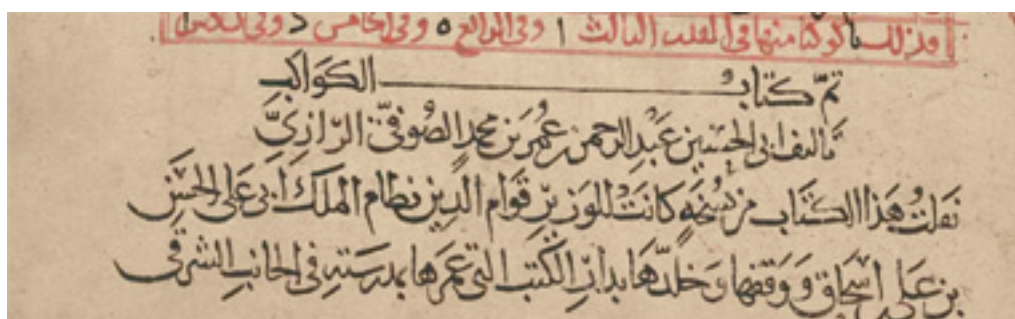 وذلك كوكبا منها في المقلب الثالث ١ وفي الرابع ٥ وفي الخامس د وفي
تم كتاب الكواكب
تأليف ابي الحسين عبد الرحمن بن عمر بن محمد الصوفي الرازي
نقلت هذا الكتاب من نسخه كانت للوزير قوام الدين نظام الملك ابي علي الحسن
بن علي بن اسحاق ووقفها وخلدها بدار الكتب التي عمرها بمدرسته في الجانب الشرقي